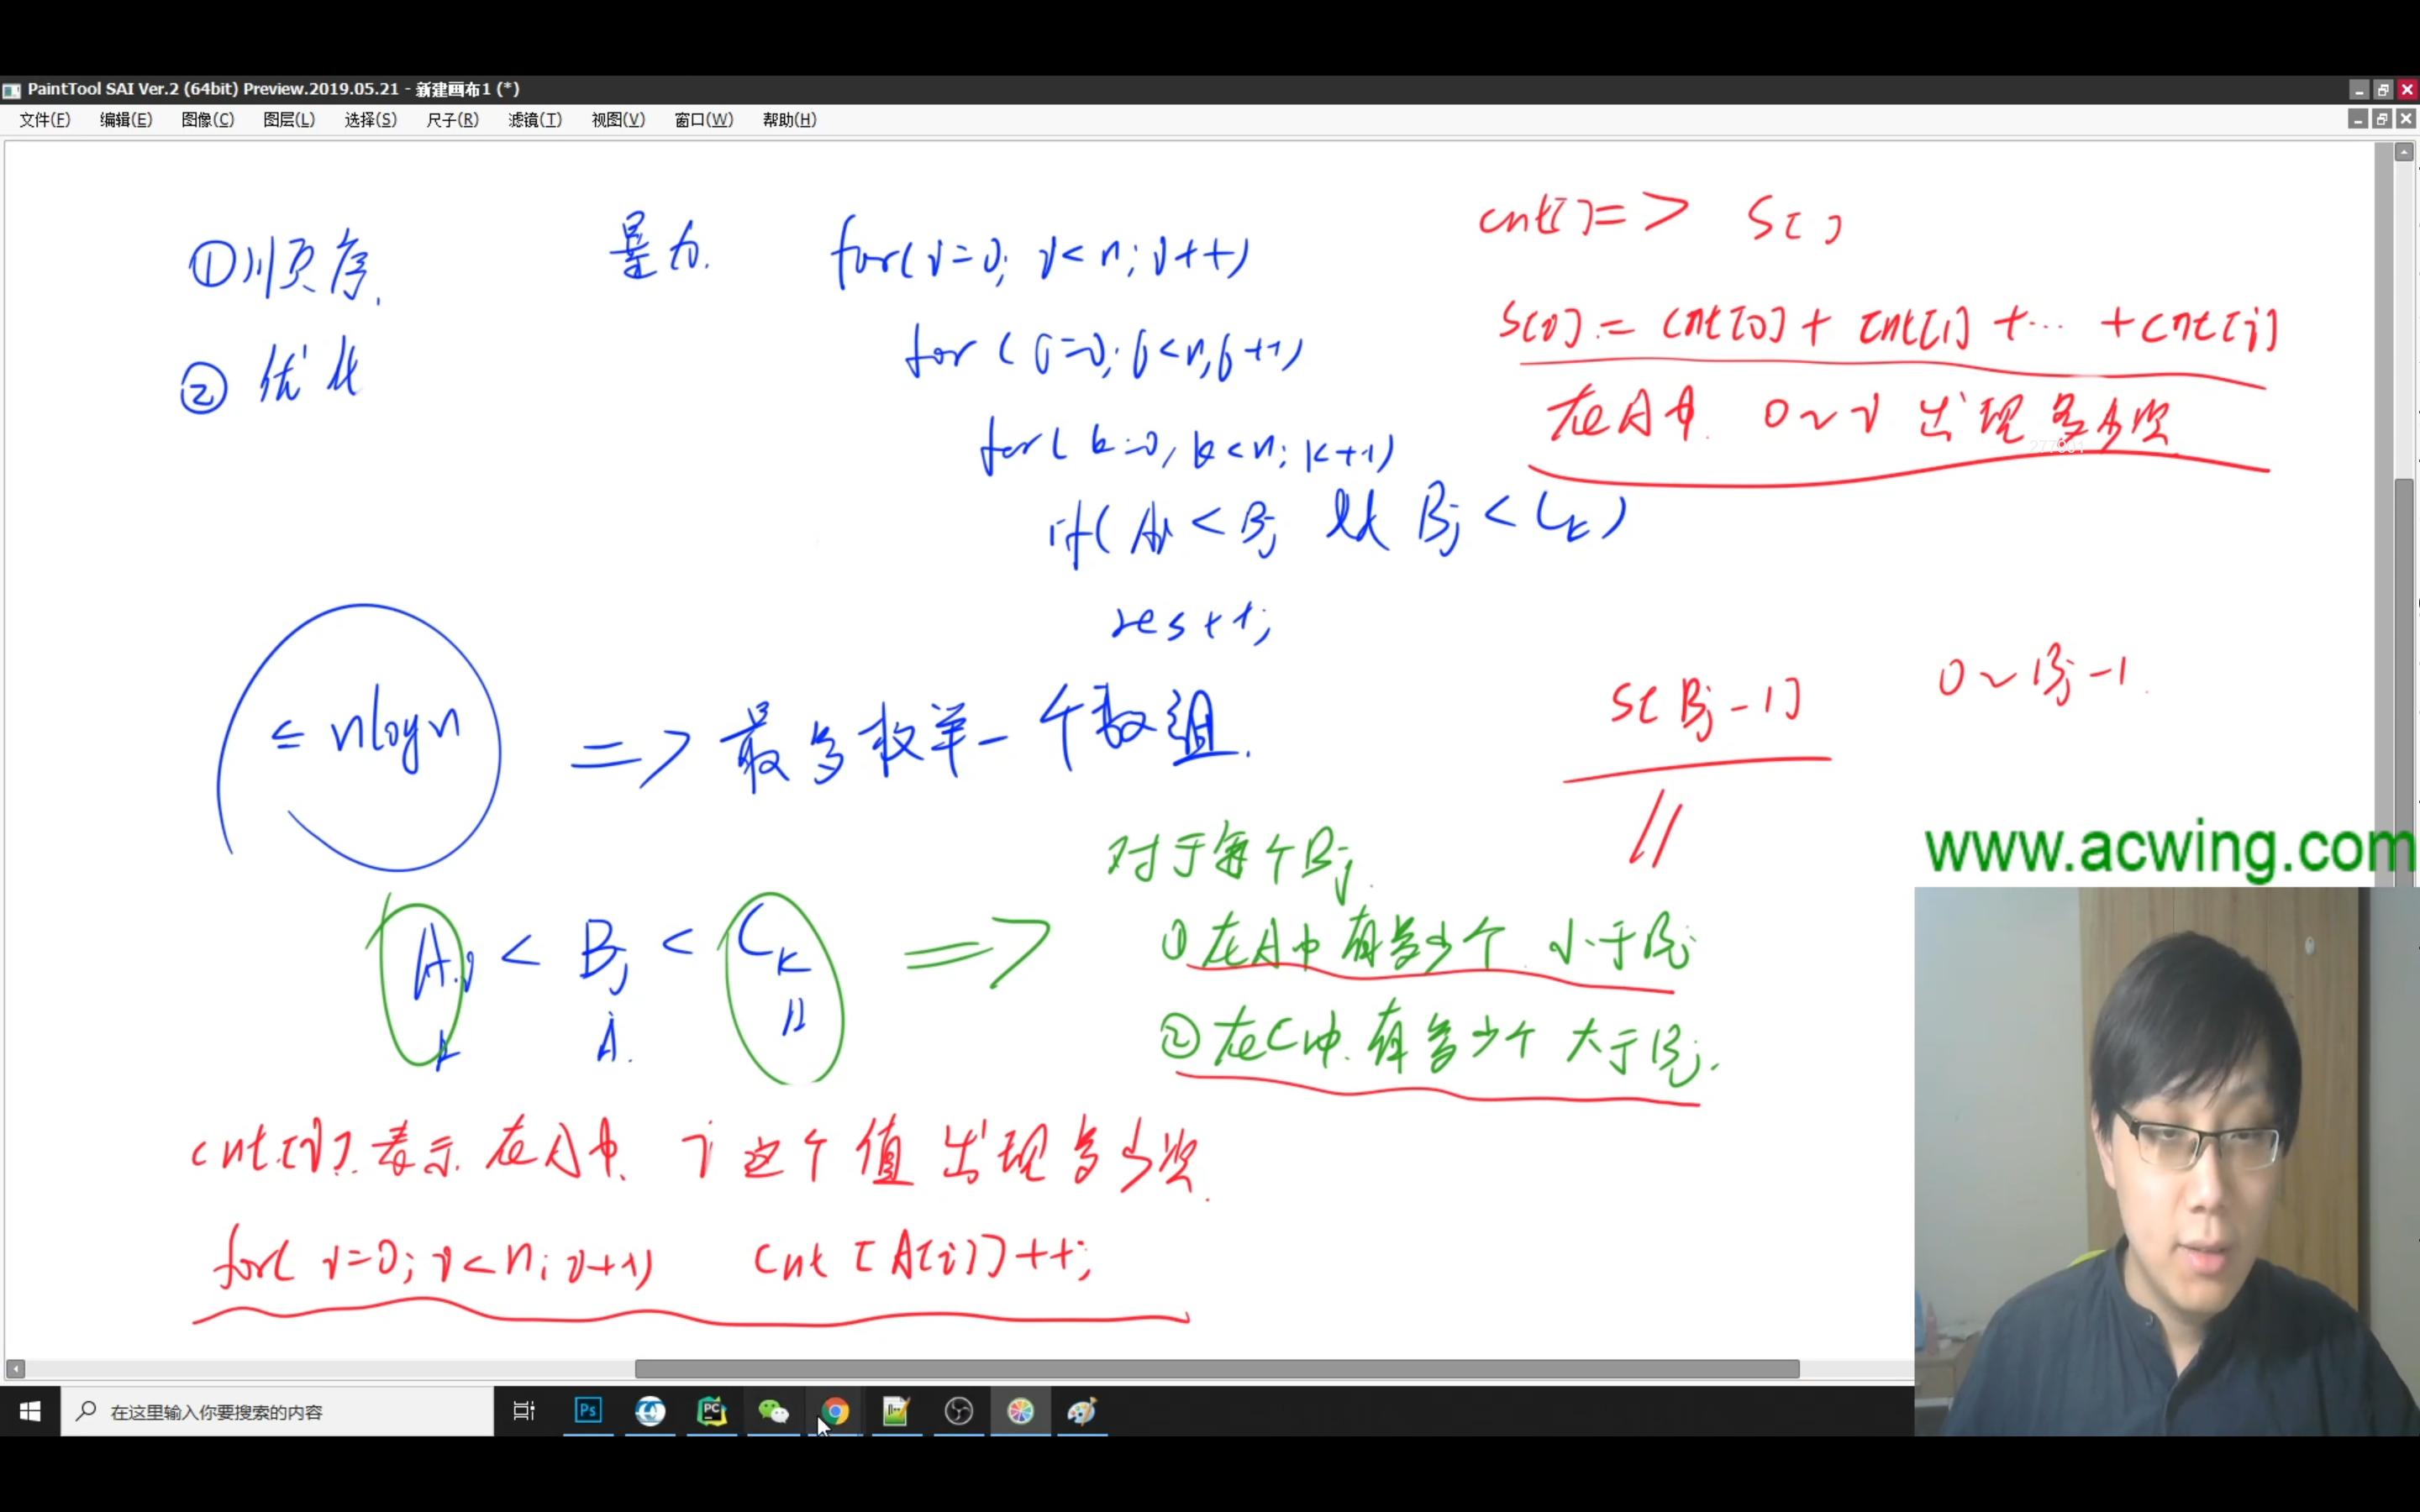 PaintTool SAI Ver.2 (64bit) Preview.2019.05.21 - 新建画布1 (*)
文件(F) 编辑(E) 图像(C) 图层(L) 选择(S) 尺子(R) 滤镜(T) 视图(V) 窗口(W) 帮助(H)
①顺序.
② 优化
暴力.
for(i=0; i<n; i++)
for(j=0; j<n; j++)
for(k=0; k<n; k++)
if(Ai < Bj && Bj < Ck)
res++;
cnt[] => S[]
S[i] = cnt[0] + cnt[1] + ... + cnt[i]
在A中. 0~i 出现多少次
≤ nlogn => 最多枚举一个数组.
S[Bj-1] 0~Bj-1.
www.acwing.com
Ai < Bj < Ck =>
对于每个Bj.
①在A中有多少个 小于Bj
②在C中.有多少个 大于Bj.
cnt[i].表示 在A中. i 这个值出现多少次.
for(i=0; i<n; i++) cnt[A[i]]++;
在这里输入你要搜索的内容
Ps
PC